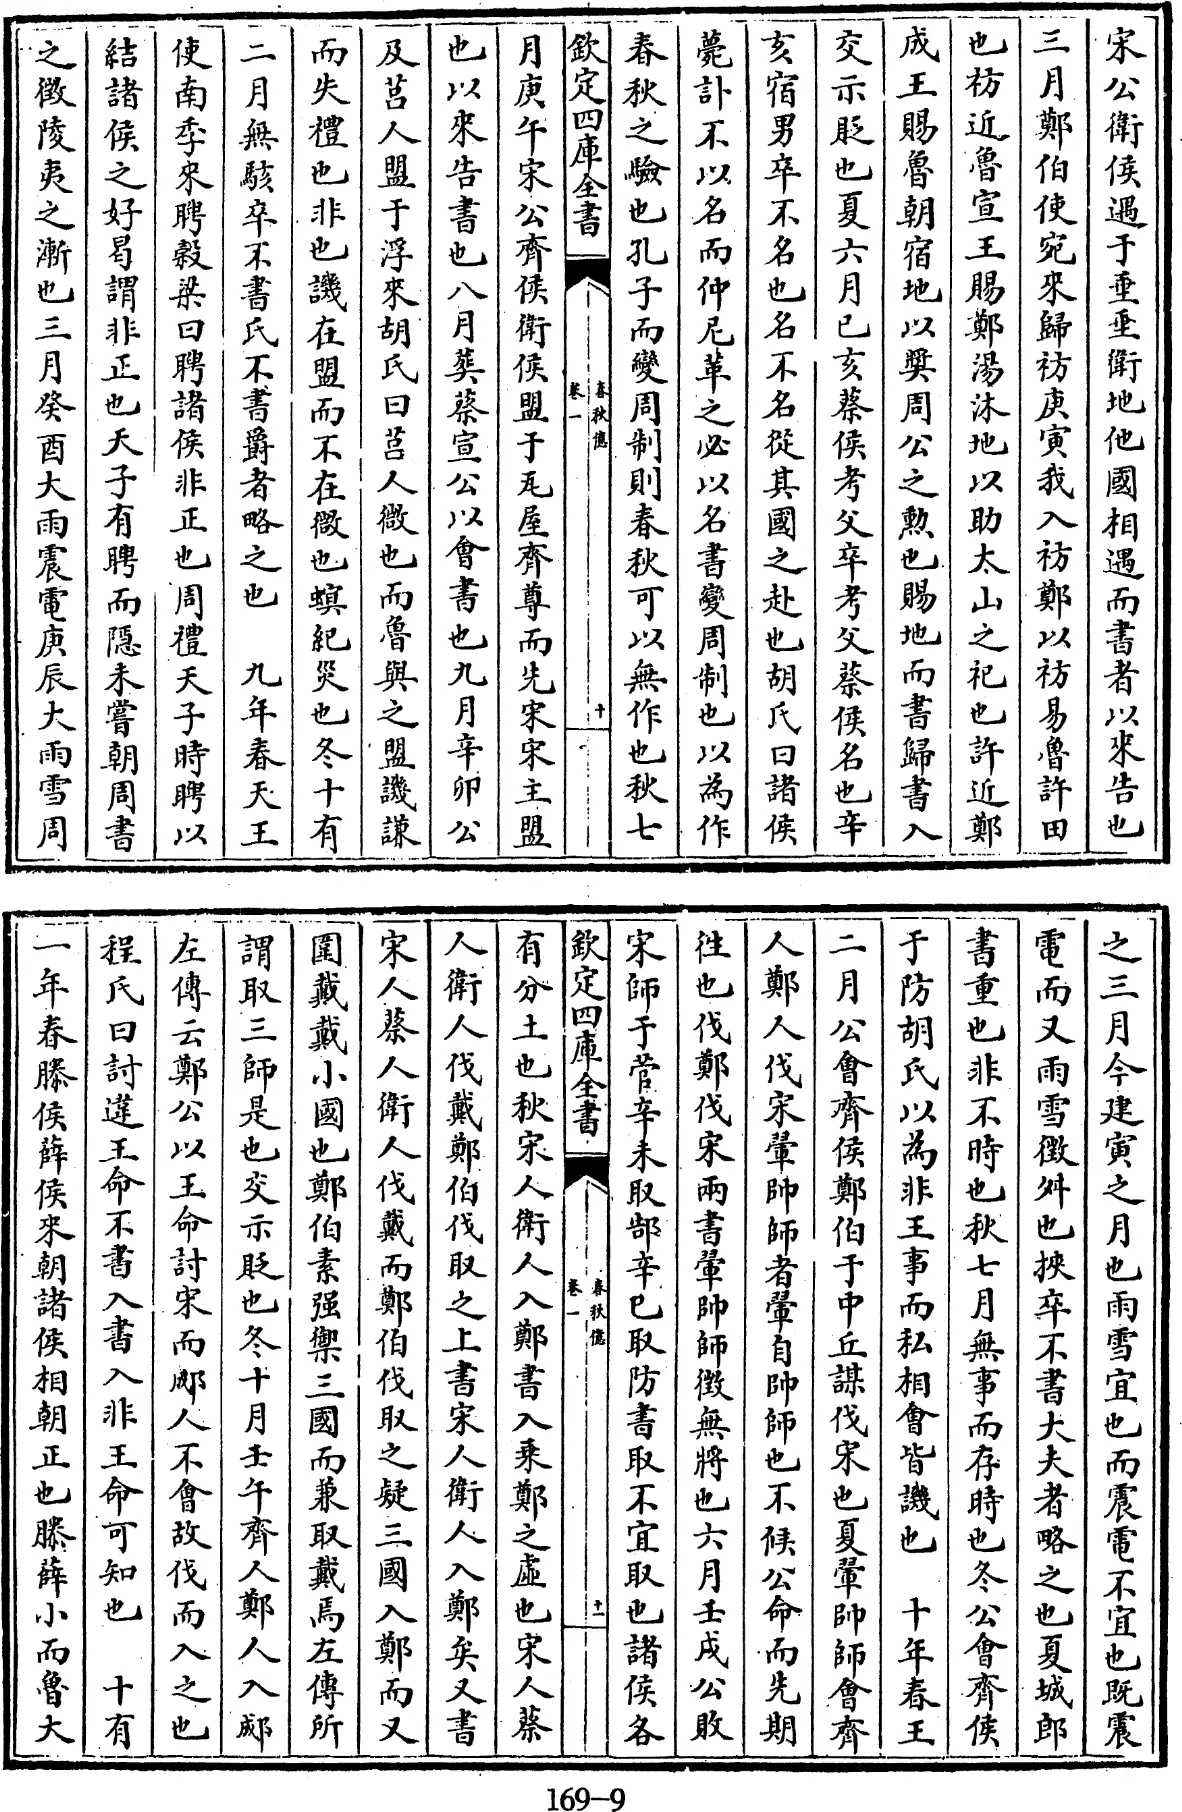 宋公衛侯遇于垂垂衛地他國相遇而書者以來告也
三月鄭伯使宛來歸祊庚寅我入祊鄭以祊易魯許田
也祊近魯宣王賜鄭湯沐地以助太山之祀也許近鄭
成王賜魯朝宿地以奬周公之勲也賜地而書歸書入
交示貶也夏六月己亥蔡侯考父卒考父蔡侯名也辛
亥宿男卒不名也名不名從其國之赴也胡氏曰諸侯
薨訃不以名而仲尼革之必以名書變周制也以為作
春秋之驗也孔子而變周制則春秋可以無作也秋七
欽定四庫全書
春秋億
卷一
十
月庚午宋公齊侯衛侯盟于瓦屋齊尊而先宋宋主盟
也以來告書也八月葬蔡宣公以會書也九月辛卯公
及莒人盟于浮來胡氏曰莒人微也而魯與之盟譏謙
而失禮也非也譏在盟而不在微也螟紀災也冬十有
二月無駭卒不書氏不書爵者略之也　九年春天王
使南季來聘穀梁曰聘諸侯非正也周禮天子時聘以
結諸侯之好曷謂非正也天子有聘而隠未嘗朝周書
之徵陵夷之漸也三月癸酉大雨震電庚辰大雨雪周
之三月今建寅之月也雨雪宜也而震電不宜也既震
電而又雨雪徴舛也挾卒不書大夫者略之也夏城郎
書重也非不時也秋七月無事而存時也冬公會齊侯
于防胡氏以為非王事而私相會皆譏也　十年春王
二月公會齊侯鄭伯于中丘謀伐宋也夏翬帥師會齊
人鄭人伐宋翬帥師者翬自帥師也不候公命而先期
徃也伐鄭伐宋兩書翬帥師徴無將也六月壬戌公敗
宋師于菅辛未取郜辛巳取防書取不宜取也諸侯各
欽定四庫全書
春秋億
卷一
十一
有分土也秋宋人衛人入鄭書入乗鄭之虛也宋人蔡
人衛人伐戴鄭伯伐取之上書宋人衛人入鄭矣又書
宋人蔡人衛人伐戴而鄭伯伐取之疑三國入鄭而又
圍戴戴小國也鄭伯素强禦三國而兼取戴焉左傳所
謂取三師是也交示貶也冬十月壬午齊人鄭人入郕
左傳云鄭公以王命討宋而郕人不會故伐而入之也
程氏曰討違王命不書入書入非王命可知也　十有
一年春滕侯薛侯來朝諸侯相朝正也滕薛小而魯大
169-9